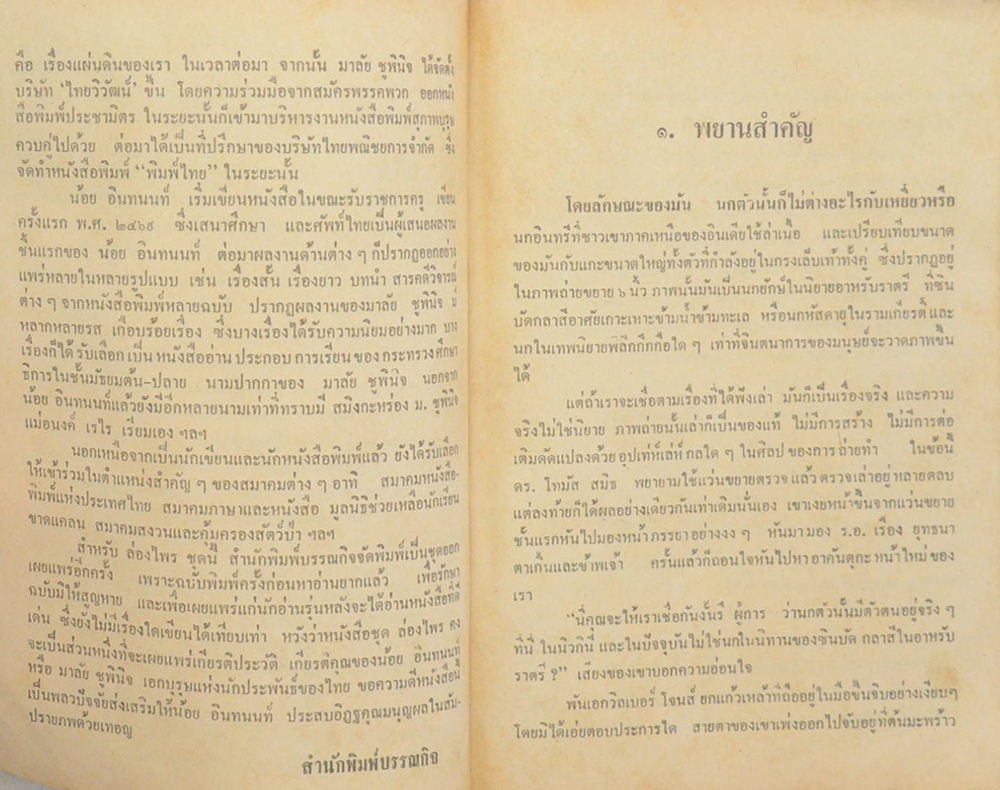 คือ เรื่องแผ่นดินของเรา ในเวลาต่อมา จากนั้น มาลัย ชูพินิจ ได้จัดตั้ง
บริษัท ‘ไทยวิวัฒน์’ ขึ้น โดยความร่วมมือจากสมัครพรรคพวก ออกหนัง
สือพิมพ์ประชามิตร ในระยะนั้นก็เข้ามาบริหารงานหนังสือพิมพ์สุภาพบุรุษ
ควบคู่ไปด้วย ต่อมาได้เป็นที่ปรึกษาของบริษัทไทยพณิชยการจำกัด ซึ่ง
จัดทำหนังสือพิมพ์ “พิมพ์ไทย” ในระยะนั้น
น้อย อินทนนท์ เริ่มเขียนหนังสือในขณะรับราชการครู เขียน
ครั้งแรก พ.ศ. ๒๔๖๙ ซึ่งเสนาศึกษา และศัพท์ไทยเป็นผู้เสนอผลงาน
ชั้นแรกของ น้อย อินทนนท์ ต่อมาผลงานด้านต่าง ๆ ก็ปรากฏออกอย่าง
แพร่หลายในหลายรูปแบบ เช่น เรื่องสั้น เรื่องยาว บทนำ สารคดีวิจารณ์
ต่าง ๆ จากหนังสือพิมพ์หลายฉบับ ปรากฏผลงานของมาลัย ชูพินิจ มี
หลากหลายรส เกือบร้อยเรื่อง ซึ่งบางเรื่องได้รับความนิยมอย่างมาก บาง
เรื่องก็ได้รับเลือก เป็น หนังสืออ่าน ประกอบ การเรียน ของ กระทรวงศึกษา
ธิการในชั้นมัธยมต้น-ปลาย นามปากกาของ มาลัย ชูพินิจ นอกจาก
น้อย อินทนนท์แล้วยังมีอีกหลายนามเท่าที่ทราบมี สมิงกะหร่อง ม. ชูพินิจ
แม่อนงค์ เรไร เรียมเอง ฯลฯ
นอกเหนือจากเป็นนักเขียนและนักหนังสือพิมพ์แล้ว ยังได้รับเลือก
ให้เข้าร่วมในตำแหน่งสำคัญ ๆ ของสมาคมต่าง ๆ อาทิ สมาคมหนังสือ-
พิมพ์แห่งประเทศไทย สมาคมภาษาและหนังสือ มูลนิธิช่วยเหลือนักเรียน
ขาดแคลน สมาคมสงวนและคุ้มครองสัตว์ป่า ฯลฯ
สำหรับ ล่องไพร ชุดนี้ สำนักพิมพ์บรรณกิจจัดพิมพ์เป็นชุดออก
เผยแพร่อีกครั้ง เพราะฉบับพิมพ์ครั้งก่อนหาอ่านยากแล้ว เพื่อรักษา
ฉบับมิให้สูญหาย และเพื่อเผยแพร่แก่นักอ่านรุ่นหลังจะได้อ่านหนังสือที่ดี
เด่น ซึ่งยังไม่มีเรื่องใดเขียนได้เทียบเท่า หวังว่าหนังสือชุด ล่องไพร คง
จะเป็นส่วนหนึ่งที่จะเผยแพร่เกียรติประวัติ เกียรติคุณของน้อย อินทนนท์
หรือ มาลัย ชูพินิจ เอกบุรุษแห่งนักประพันธ์ของไทย ขอความดีหนังสือนี้
เป็นพลวปัจจัยส่งเสริมให้น้อย อินทนนท์ ประสบอิฏฐคุณมนุญผลในสัม-
ปรายภพด้วยเทอญ
สำนักพิมพ์บรรณกิจ
๑. พยานสำคัญ
โดยลักษณะของมัน นกตัวนั้นก็ไม่ต่างอะไรกับเหยี่ยวหรือ
นกอินทรีที่ชาวเขาภาคเหนือของอินเดียใช้ล่าเนื้อ และเปรียบเทียบขนาด
ของมันกับแกะขนาดใหญ่ทั้งตัวที่กำลังอยู่ในกรงเล็บเท้าทั้งคู่ ซึ่งปรากฏอยู่
ในภาพถ่ายขยาย ๖ นิ้ว ภาพนั้นมันเป็นนกยักษ์ในนิยายอาหรับราตรี ที่ซิน
บัดกลาสีอาศัยเกาะเหาะข้ามน้ำข้ามทะเล หรือนกหัสดายุในรามเกียรติ์ และ
นกในเทพนิยายพิลึกกึกกือใด ๆ เท่าที่จินตนาการของมนุษย์จะวาดภาพขึ้น
ได้
แต่ถ้าเราจะเชื่อตามเรื่องที่ได้ฟังเล่า มันก็เป็นเรื่องจริง และความ
จริงไม่ใช่นิยาย ภาพถ่ายนั้นเล่าก็เป็นของแท้ ไม่มีการสร้าง ไม่มีการต่อ
เติมดัดแปลงด้วย อุปเท่ห์เล่ห์ กลใด ๆ ในศิลป ของ การ ถ่ายทำ ในข้อนี้
ดร. โทมัส สมิธ พยายามใช้แว่นขยายตรวจ แล้ว ตรวจ เล่าอยู่ หลายตลบ
แต่ลงท้ายก็ได้ผลอย่างเดียวกันเท่าเดิมนั่นเอง เขาเงยหน้าขึ้นจากแว่นขยาย
ชั้นแรกหันไปมองหน้าภรรยาอย่างงง ๆ หันมามอง ร.อ. เรือง ยุทธนา
ตาเกิ้นและข้าพเจ้า ครั้นแล้วก็ถอนใจหันไปหา อาคันตุกะ หน้าใหม่ ของ
เรา
“นี่คุณจะให้เราเชื่อกันงั้นรึ ผู้การ ว่านกตัวนั้นมีตัวตนอยู่จริง ๆ
ที่นี่ ในนิวกินี และในปัจจุบันไม่ใช่นกในนิทานของซินบัด กลาสีในอาหรับ
ราตรี ?” เสียงของเขาบอกความอ่อนใจ
พันเอกวิลเบอร์ โจนส์ ยกแก้วเหล้าที่ถืออยู่ในมือขึ้นจิบอย่างเงียบๆ
โดยมิได้เอ่ยตอบประการใด สายตาของเขาเพ่งออกไปจับอยู่ที่ต้นมะพร้าว